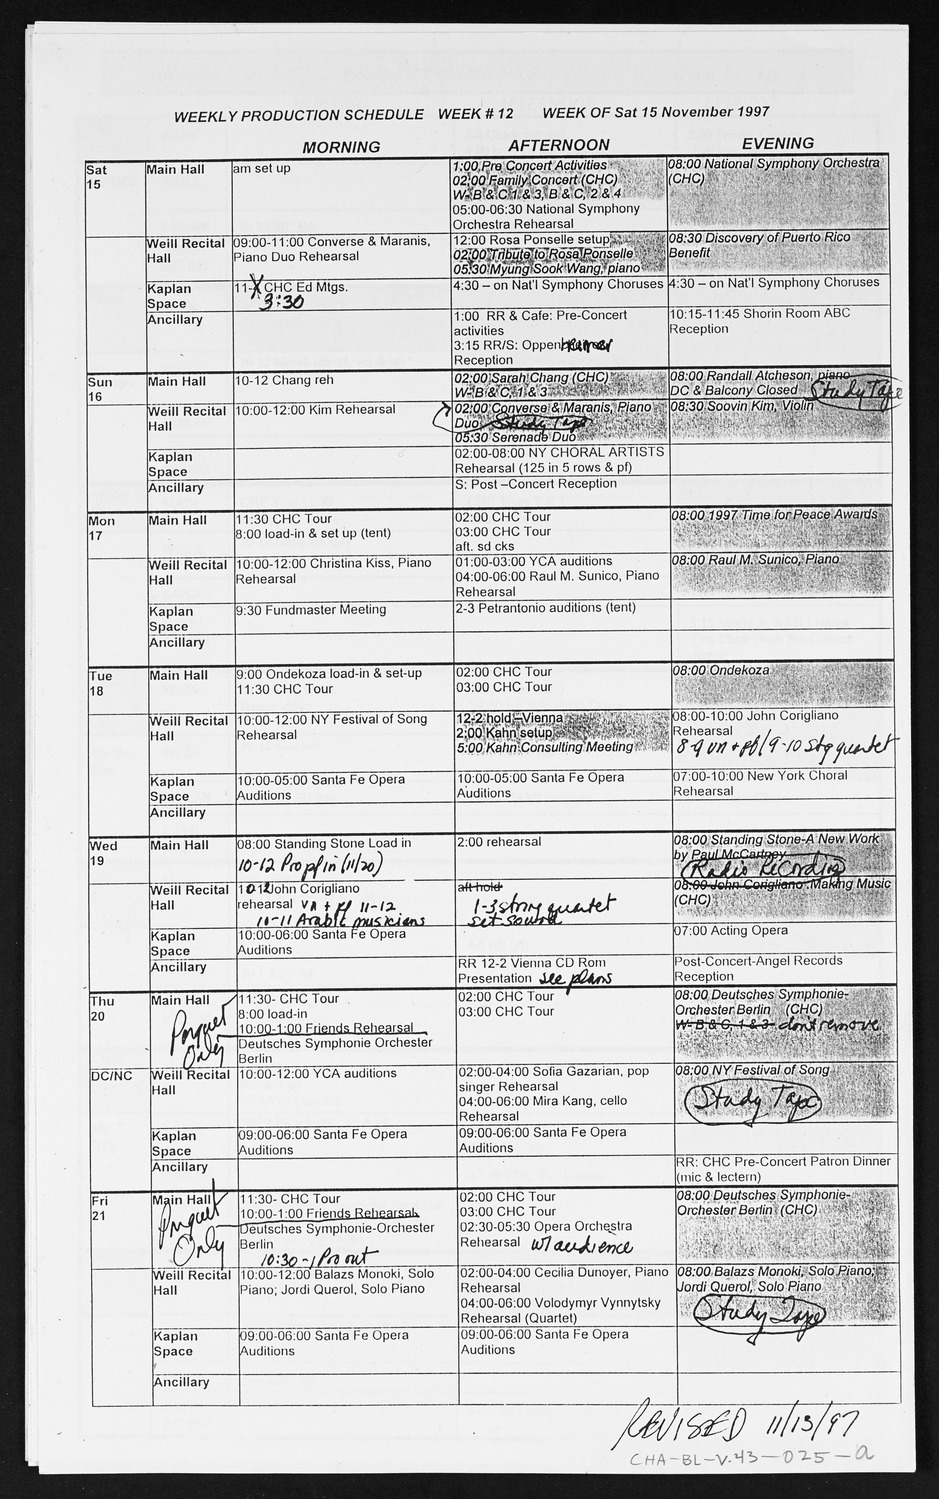 WEEKLY PRODUCTION SCHEDULE WEEK # 12 WEEK OF Sat 15 November 1997
MORNING AFTERNOON EVENING
Sat
15
Main Hall
am set up
1:00 Pre Concert Activities
02:00 Family Concert (CHC)
W- B & C 1 & 3, B & C, 2 & 4
05:00-06:30 National Symphony
Orchestra Rehearsal
08:00 National Symphony Orchestra
(CHC)
Weill Recital
Hall
09:00-11:00 Converse & Maranis,
Piano Duo Rehearsal
12:00 Rosa Ponselle setup
02:00 Tribute to Rosa Ponselle
05:30 Myung Sook Wang, piano
08:30 Discovery of Puerto Rico
Benefit
Kaplan
Space
11- CHC Ed Mtgs.
3:30
4:30 – on Nat'l Symphony Choruses
4:30 – on Nat'l Symphony Choruses
Ancillary
1:00 RR & Cafe: Pre-Concert
activities
3:15 RR/S: Oppenheimer
Reception
10:15-11:45 Shorin Room ABC
Reception
Sun
16
Main Hall
10-12 Chang reh
02:00 Sarah Chang (CHC)
W- B & C, 1 & 3
08:00 Randall Atcheson, piano
DC & Balcony Closed Study Tape
Weill Recital
Hall
10:00-12:00 Kim Rehearsal
02:00 Converse & Maranis, Piano
Duo Study Tape
05:30 Serenade Duo
08:30 Soovin Kim, Violin
Kaplan
Space
02:00-08:00 NY CHORAL ARTISTS
Rehearsal (125 in 5 rows & pf)
Ancillary
S: Post –Concert Reception
Mon
17
Main Hall
11:30 CHC Tour
8:00 load-in & set up (tent)
02:00 CHC Tour
03:00 CHC Tour
aft. sd cks
08:00 1997 Time for Peace Awards
Weill Recital
Hall
10:00-12:00 Christina Kiss, Piano
Rehearsal
01:00-03:00 YCA auditions
04:00-06:00 Raul M. Sunico, Piano
Rehearsal
08:00 Raul M. Sunico, Piano
Kaplan
Space
9:30 Fundmaster Meeting
2-3 Petrantonio auditions (tent)
Ancillary
Tue
18
Main Hall
9:00 Ondekoza load-in & set-up
11:30 CHC Tour
02:00 CHC Tour
03:00 CHC Tour
08:00 Ondekoza
Weill Recital
Hall
10:00-12:00 NY Festival of Song
Rehearsal
12-2 hold –Vienna
2:00 Kahn setup
5:00 Kahn Consulting Meeting
08:00-10:00 John Corigliano
Rehearsal
8-9 vn + pf / 9-10 stg quartet
Kaplan
Space
10:00-05:00 Santa Fe Opera
Auditions
10:00-05:00 Santa Fe Opera
Auditions
07:00-10:00 New York Choral
Rehearsal
Ancillary
Wed
19
Main Hall
08:00 Standing Stone Load in
10-12 Pro pf in (11/20)
2:00 rehearsal
08:00 Standing Stone-A New Work
by Paul McCartney
Radio Recording
Weill Recital
Hall
10-12 John Corigliano
rehearsal vn + pf 11-12
10-11 Arabic musicians
aft hold
1-3 string quartet
set sound
08:00 John Corigliano :Making Music
(CHC)
Kaplan
Space
10:00-06:00 Santa Fe Opera
Auditions
07:00 Acting Opera
Ancillary
RR 12-2 Vienna CD Rom
Presentation see plans
Post-Concert-Angel Records
Reception
Thu
20
Main Hall
Parquet
Only
11:30- CHC Tour
8:00 load-in
10:00-1:00 Friends Rehearsal
Deutsches Symphonie Orchester
Berlin
02:00 CHC Tour
03:00 CHC Tour
08:00 Deutsches Symphonie-
Orchester Berlin (CHC)
W- B & C, 1 & 3- don't remove
DC/NC
Weill Recital
Hall
10:00-12:00 YCA auditions
02:00-04:00 Sofia Gazarian, pop
singer Rehearsal
04:00-06:00 Mira Kang, cello
Rehearsal
08:00 NY Festival of Song
Study Tape
Kaplan
Space
09:00-06:00 Santa Fe Opera
Auditions
09:00-06:00 Santa Fe Opera
Auditions
Ancillary
RR: CHC Pre-Concert Patron Dinner
(mic & lectern)
Fri
21
Main Hall
Parquet
Only
11:30- CHC Tour
10:00-1:00 Friends Rehearsal
Deutsches Symphonie-Orchester
Berlin
10:30-1 Pro out
02:00 CHC Tour
03:00 CHC Tour
02:30-05:30 Opera Orchestra
Rehearsal w/ audience
08:00 Deutsches Symphonie-
Orchester Berlin (CHC)
Weill Recital
Hall
10:00-12:00 Balazs Monoki, Solo
Piano; Jordi Querol, Solo Piano
02:00-04:00 Cecilia Dunoyer, Piano
Rehearsal
04:00-06:00 Volodymyr Vynnytsky
Rehearsal (Quartet)
08:00 Balazs Monoki, Solo Piano;
Jordi Querol, Solo Piano
Study Tape
Kaplan
Space
09:00-06:00 Santa Fe Opera
Auditions
09:00-06:00 Santa Fe Opera
Auditions
Ancillary
REVISED 11/13/97
CHA-BL-V.43-025-a